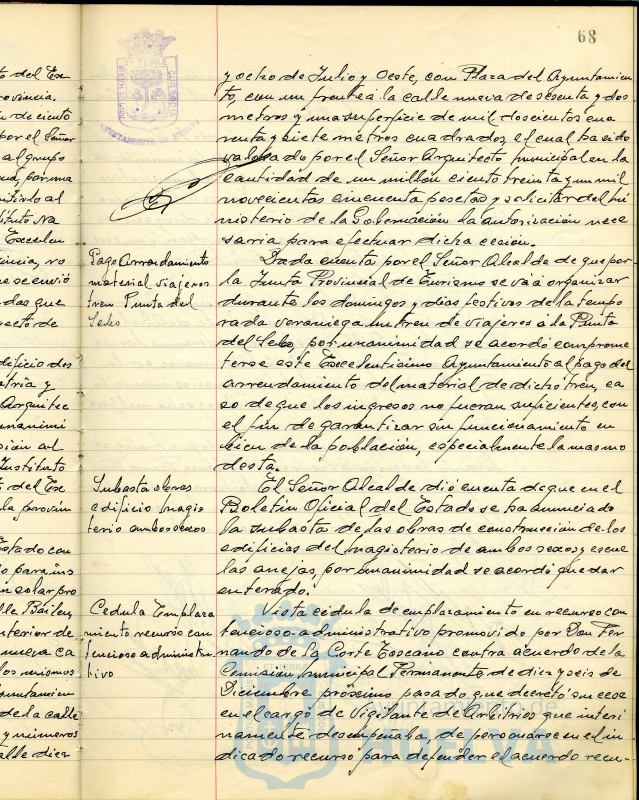 68
to del Ex
rovincia.
de ciento
por el Señor
al grupo
Excelen
incia, no
se envió
das que
yecto de
dificio des
atria y
Arquitec
unanimi
sión al
Instituto
del Ex
la provin
Estado con
o para ins
n solar pro
alle Bailen,
sterior de
nueva ca
los mismos
yuntamien
de la calle
y números
alle diez
y ocho de Julio y Oeste, con Plaza del Ayuntamien
to, con un frente á la calle nueva de sesenta y dos
metros y una superficie de mil doscientos cua
renta y siete metros cuadrados, el cual ha sido
valorado por el Señor Arquitecto municipal en la
cantidad de un millón ciento treinta y un mil
novecientas cincuenta pesetas y solicitar del Mi
nisterio de la Gobernación la autorización nece
saria para efectuar dicha cesión.
Pago Arrendamiento
material viajeros
tren Punta del
Sebo
Dada cuenta por el Señor Alcalde de que por
la Junta Provincial de Turismo se vá á organizar
durante los domingos y dias festivos de la tempo
rada veraniega un tren de viajeros á la Punta
del Sebo, por unanimidad se acordó comprome
terse este Excelentísimo Ayuntamiento al pago del
arrendamiento del material de dicho tren, ca
so de que los ingresos no fueran suficientes, con
el fin de garantizar su funcionamiento en
bien de la población, especialmente la mas mo
desta.
Subasta obras
edificio magis
terio ambos sexos
El Señor Alcalde dió cuenta de que en el
Boletín Oficial del Estado se ha anunciado
la subasta de las obras de construcción de los
edificios del magisterio de ambos sexos y escue
las anejas, por unanimidad se acordó quedar
enterado.
Cedula Emplaza
miento recurso con
tencioso administra
tivo
Vista cédula de emplazamiento en recurso con
tencioso-administrativo promovido por Don Fer
nando de la Corte Toscano contra acuerdo de la
Comisión Municipal Permanente de diez y seis de
Diciembre próximo pasado que decretó su cese
en el cargo de Vigilante de Arbitrios que interi
namente desempeñaba, de personarse en el in
dicado recurso para defender el acuerdo recu-
Ayuntamiento de
HUELVA